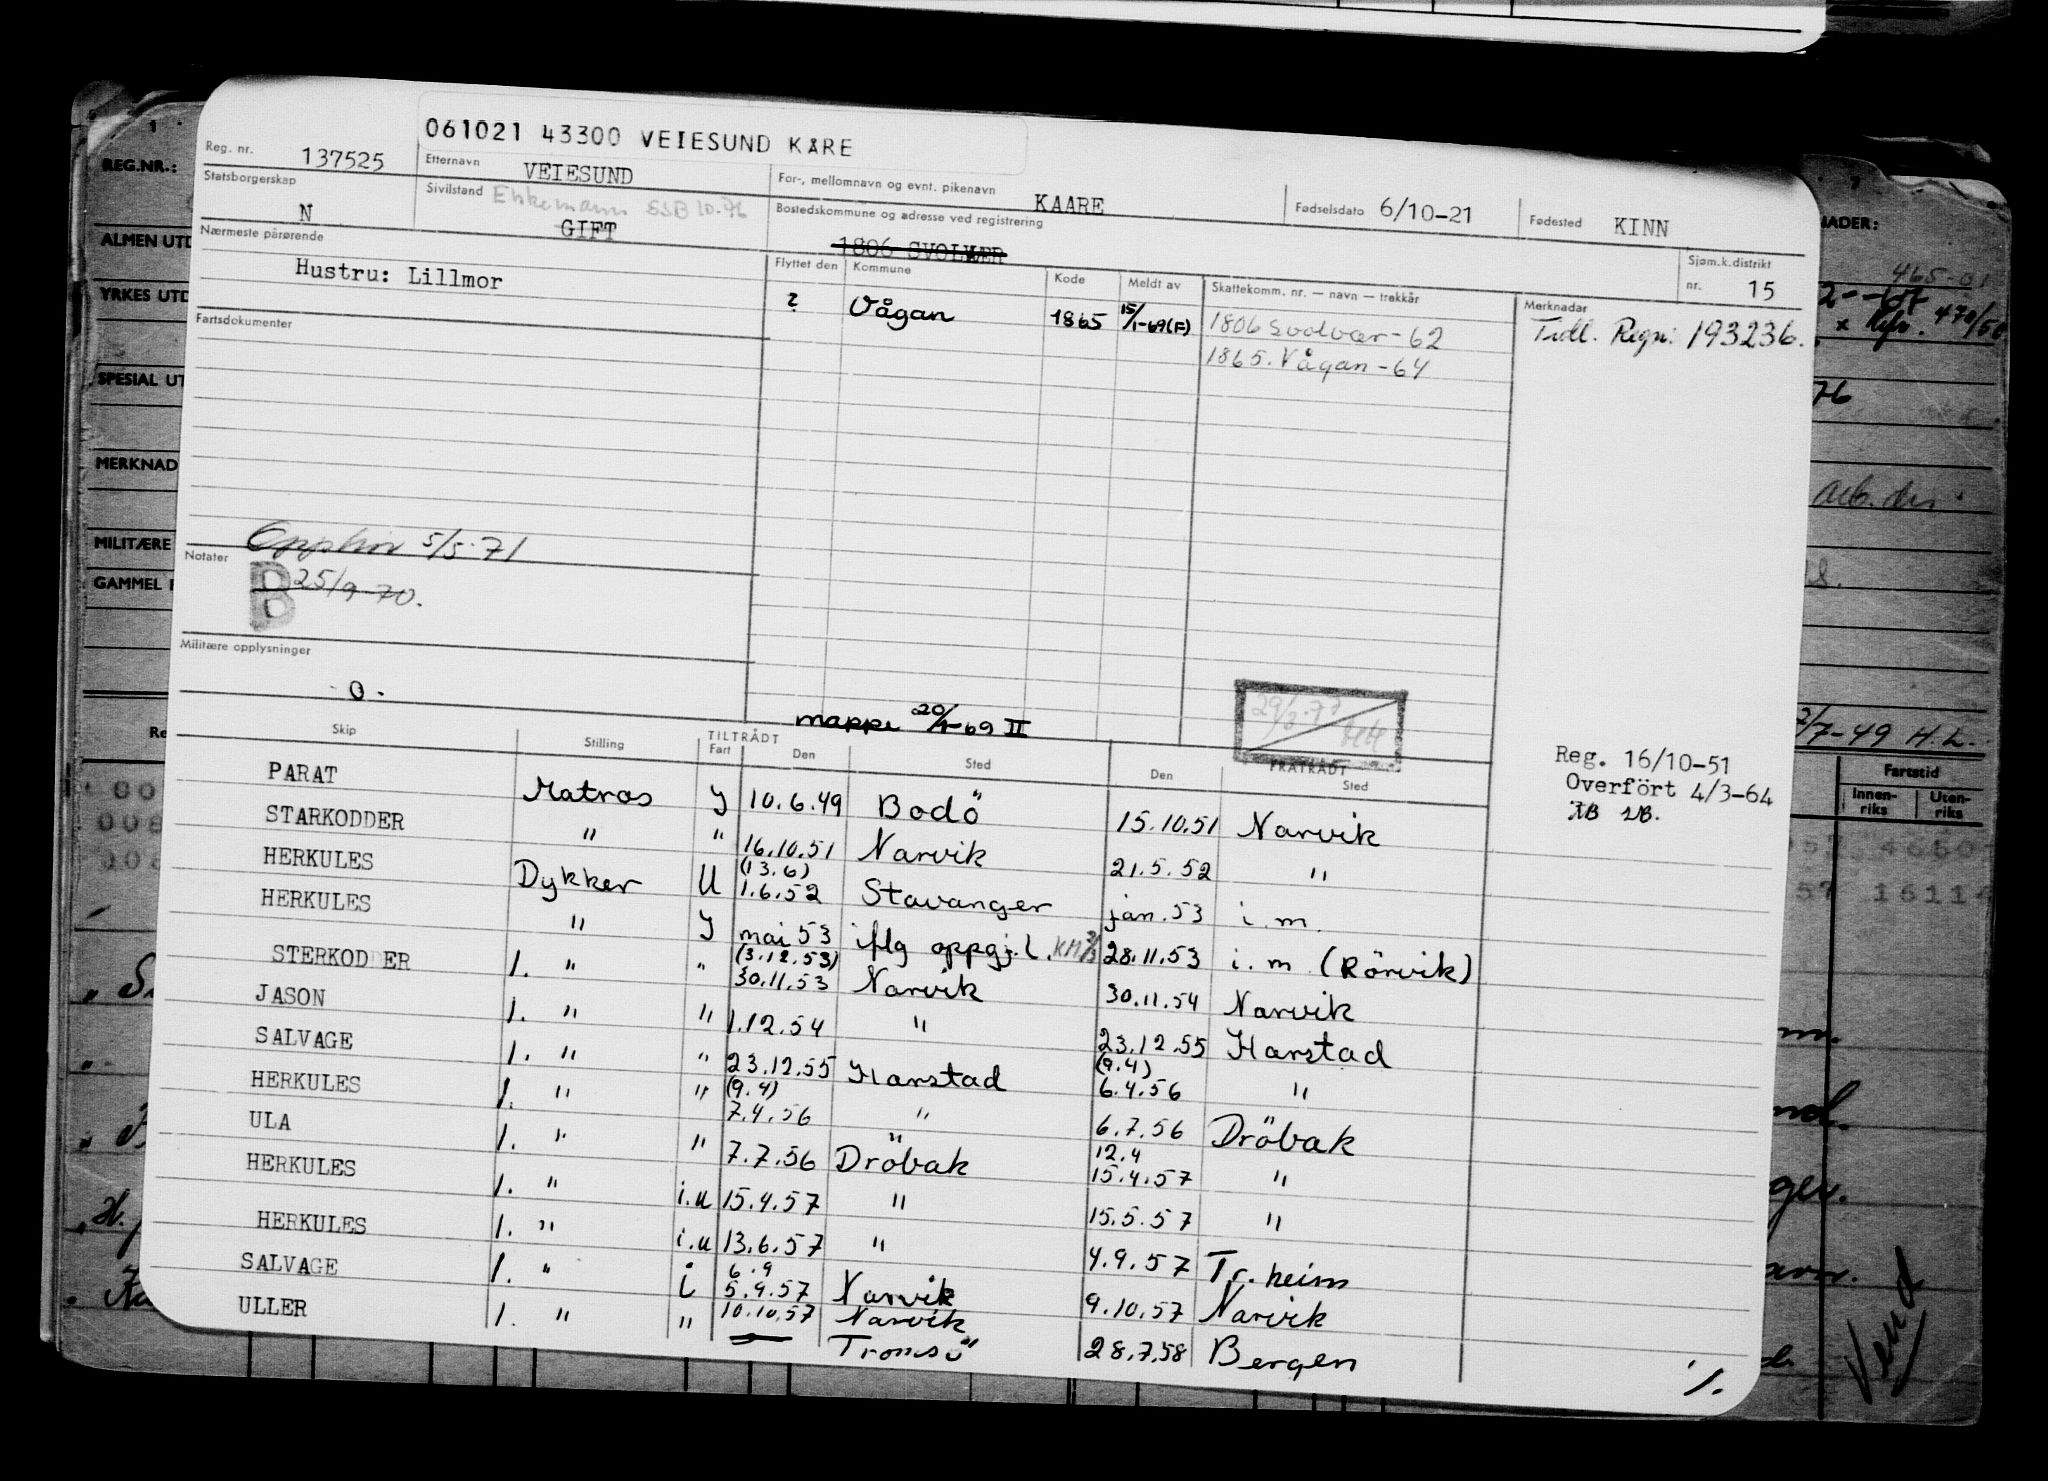 061021 43300 VEIESUND KÅRE
Reg. nr. 137525 Etternavn VEIESUND For-, mellomnavn og evnt. pikenavn KAARE Fødselsdato 6/10-21 Fødested KINN
Statsborgerskap N Sivilstand Enkemann SSB 10-76 GIFT Bostedskommune og adresse ved registrering 1806 SVOLVÆR Sjøm.k.distrikt nr. 15
Nærmeste pårørende Hustru: Lillmor
Flyttet den Kommune Kode Meldt av Skattekomm. nr. — navn — trekkår Merknadar
? Vågan 1865 15/1-69(F) 1806 Svolvær-62 Tidl. Regnr: 193236.
1865. Vågan-64
Fartsdokumenter
Opphør 5/5-71
Notater
B 25/9-70.
Militære opplysninger
0.
mappe 20/1-69 II
29/3-77
Reg. 16/10-51
Overfört 4/3-64
Skip Stilling TILTRÅDT Fart Den Sted FRATRÅDT Den Sted
PARAT Matros J 10.6.49 Bodö 15.10.51 Narvik
STARKODDER " " 16.10.51 Narvik 21.5.52 "
HERKULES Dykker U (13.6) 1.6.52 Stavanger jan.53 i.m.
HERKULES " J mai 53 iflg oppgj.l. 28.11.53 i.m. (Rörvik)
STERKODDER 1. " " (3.12.53) 30.11.53 Narvik 30.11.54 Narvik
JASON 1. " " 1.12.54 " 23.12.55 Harstad
SALVAGE 1. " " 23.12.55 Harstad (9.4) 6.4.56 "
HERKULES 1. " " (9.4) 7.4.56 " 6.7.56 Dröbak
ULA 1. " " 7.7.56 Dröbak 12.4 15.4.57 "
HERKULES 1. " i.u 15.4.57 " 15.5.57 "
HERKULES 1. " i.u 13.6.57 " 4.9.57 Tr.heim
SALVAGE 1. " i 6.9 5.9.57 Narvik 9.10.57 Narvik
ULLER 1. " " 10.10.57 Narvik Tromsö 28.7.58 Bergen
REG.NR.:
ALMEN UTD
YRKES UTD
SPESIAL UT
MERKNAD
MILITÆRE
GAMMEL
465-01
470/56
76
2/7-49 H.L.
Fartstid
Innen-riks Uten-riks
Vend